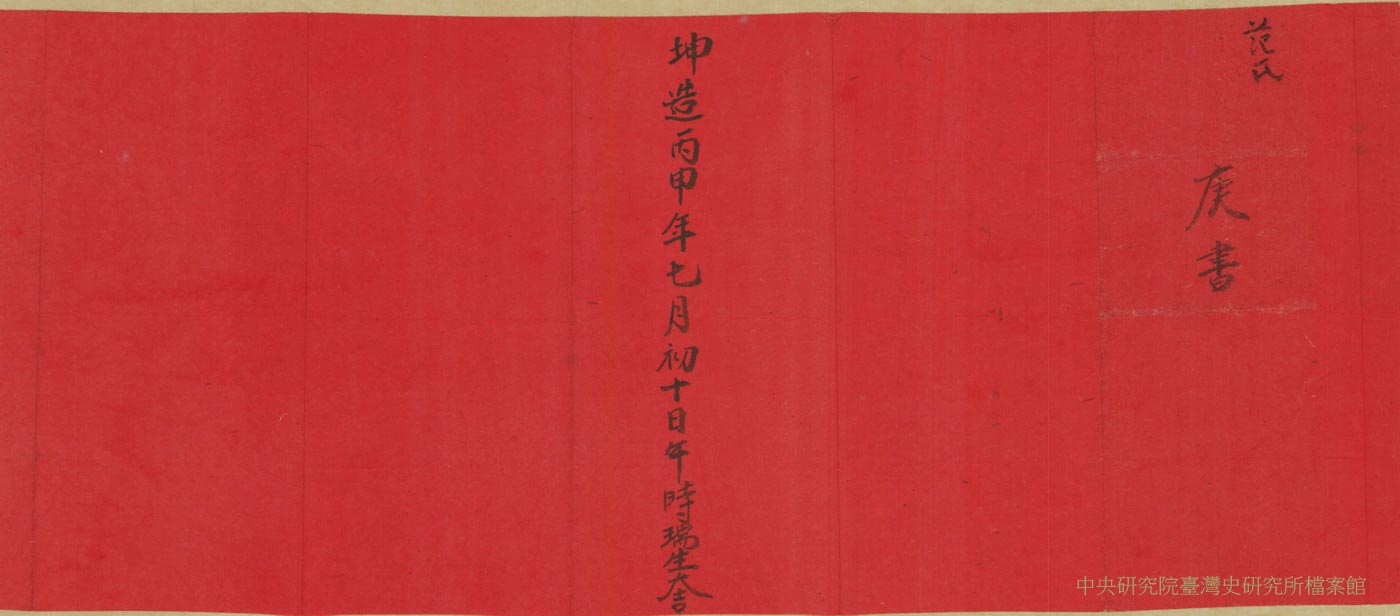 范氏
庚書
坤造丙申年七月初十日午時瑞生大吉
中央研究院臺灣史研究所檔案館